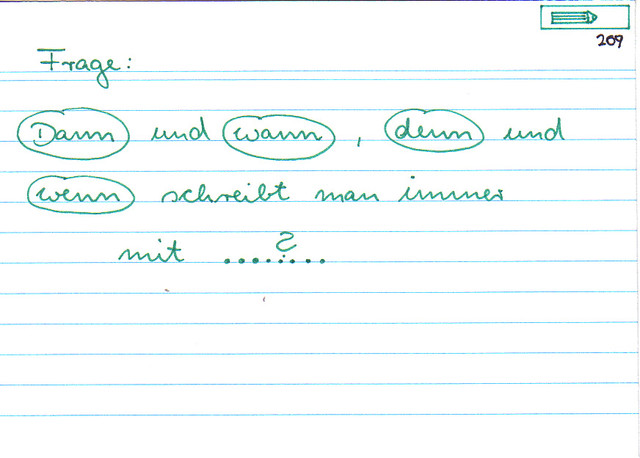 209
Frage:
Dann und wann, denn und
wenn schreibt man immer
mit .......?